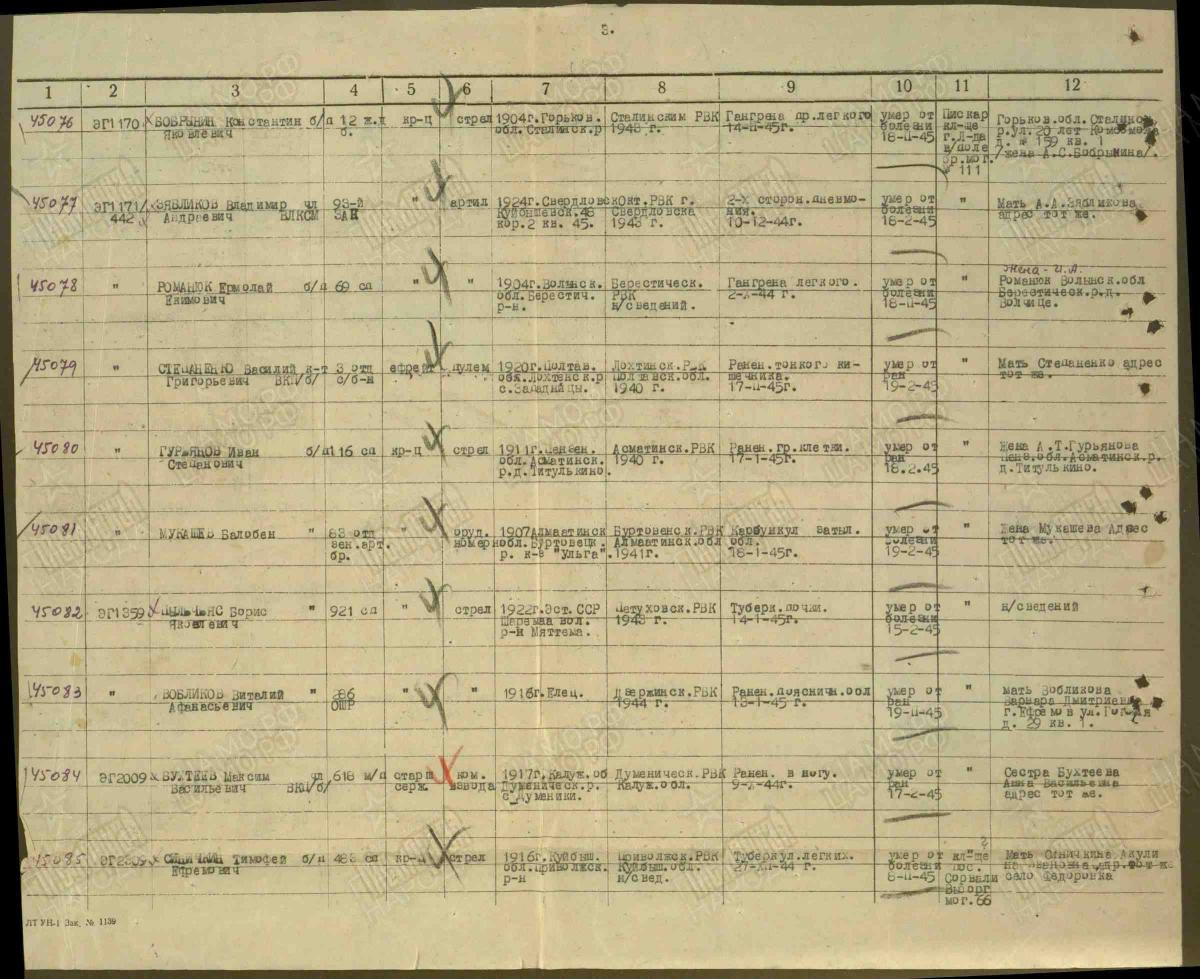 3.
1 2 3 4 5 6 7 8 9 10 11 12
45076 ЭГ1170 БОБРЫНИН Константин б/п 12 ж.д кр-ц стрел 1904г.Горьков. Сталинским РВК Гангрена пр.легкого умер от Пискар Горьков.обл.Сталинс
Яковлевич б. обл.Сталинск.р 1943 г. 14-II-45г. болезни кл-ще р.ул.20 лет Комсомола
18-II-45 г.Л-да д. № 159 кв. 1
в/поле /жена А.С.Бобрынина/.
бр.мог.
111
45077 ЭГ1171/ ЗЯБЛИКОВ Владимир чл 93-й " артил 1924г.Свердловск Окт.РВК г. 2-х сторон.пневмо- умер от " Мать А.А.Зябликова
442 Андреевич ВЛКСМ ЗАП Куйбышевск.48 Свердловска ния. болезни адрес тот же.
кор.2 кв. 45. 1943 г. 10-12-44г. 18-2-45
45078 " РОМАНЮК Ермолай б/п 69 сп " " 1904г.Волынск. Берестическ. Гангрена легкого. умер от " Жена - И.А.
Екимович обл.Берестич. РВК 2-X-44 г. болезни Романюк Волынск.обл
р-н. н/сведений. 18-II-45 Берестическ.р.д.
Волчице.
45079 " СТЕПАНЕНКО Василий к-т 3 отд ефрейт пулем 1920г.Полтав. Лохтинск.РВК Ранен.тонкого ки- умер от " Мать Степаненко адрес
Григорьевич ВКП/б/ с/б-н обл.Лохтенск.р Полтавск.обл. шечника. ран тот же.
с.Западницы. 1940 г. 17-II-45г. 19-2-45
45080 " ГУРЬЯНОВ Иван б/п 116 сп кр-ц стрел 1911г.Пензен. Асматинск.РВК Ранен.гр.клетки. умер от " Жена А.Т.Гурьянова
Степанович обл.Асматинск. 1940 г. 17-1-45г. ран Пенз.обл.Асматинск.р.
р.д.Титулькино. 18.2.45 д.Титулькино.
45081 " МУКАШЕВ Балобен " 83 отд " оруд. 1907Алмаатинск Буртовенск.РВК Карбункул затыл. умер от " Жена Мукашева Адрес
зен.арт. номер обл.Буртовецк. Алмаатинск.обл обл. болезни тот же.
бр. р. к-з "Ульга". 1941г. 18-1-45г. 19-2-45
45082 ЭГ1359 Борис " 921 сп " стрел 1922г.Эст.ССР Петуховск.РВК Туберк.почки. умер от " н/сведений
Яковлевич Шаремаа вол. 1943 г. 14-1-45г. болезни
р-н Мяттема. 15-2-45
45083 " ВОБЛИКОВ Виталий " 86 " " 1916г.Елец. Дзержинск.РВК Ранен.пояснич.обл умер от " мать Вобликова
Афанасьевич ОШР 1944 г. 13-1-45 г. ран Варвара Дмитриевна
19-II-45 г.Ефремов ул.Гоголя
д. 29 кв. 1.
45084 ЭГ2009 БУХТЕЕВ Максим чл 618 м/п старш ком. 1917г.Калуж.об Думеническ.РВК Ранен. в ногу. умер от " Сестра Бухтеева
Васильевич ВКП/б/ серж. взвода Думеническ.р. Калуж.обл. 9-X-44г. ран Анна Васильевна
с Думеники. 17-2-45 адрес тот же.
45085 ЭГ2309 СИНИЧКИН Тимофей б/п 483 сп кр-ц стрел 1916г.Куйбыш. Приволжск.РВК Туберкул.легких. умер от кл-ще Мать Синичкина Акули
Ефремович обл.Приволжск. Куйбыш.обл. 27-XII-44 г. болезни пос. на Ивановна,адр.тот же
р-н н/свед. 8-II-45 Сорвали село Федоровка
Выборг
мог.66
ЛТ УН-1 Зак. № 1139